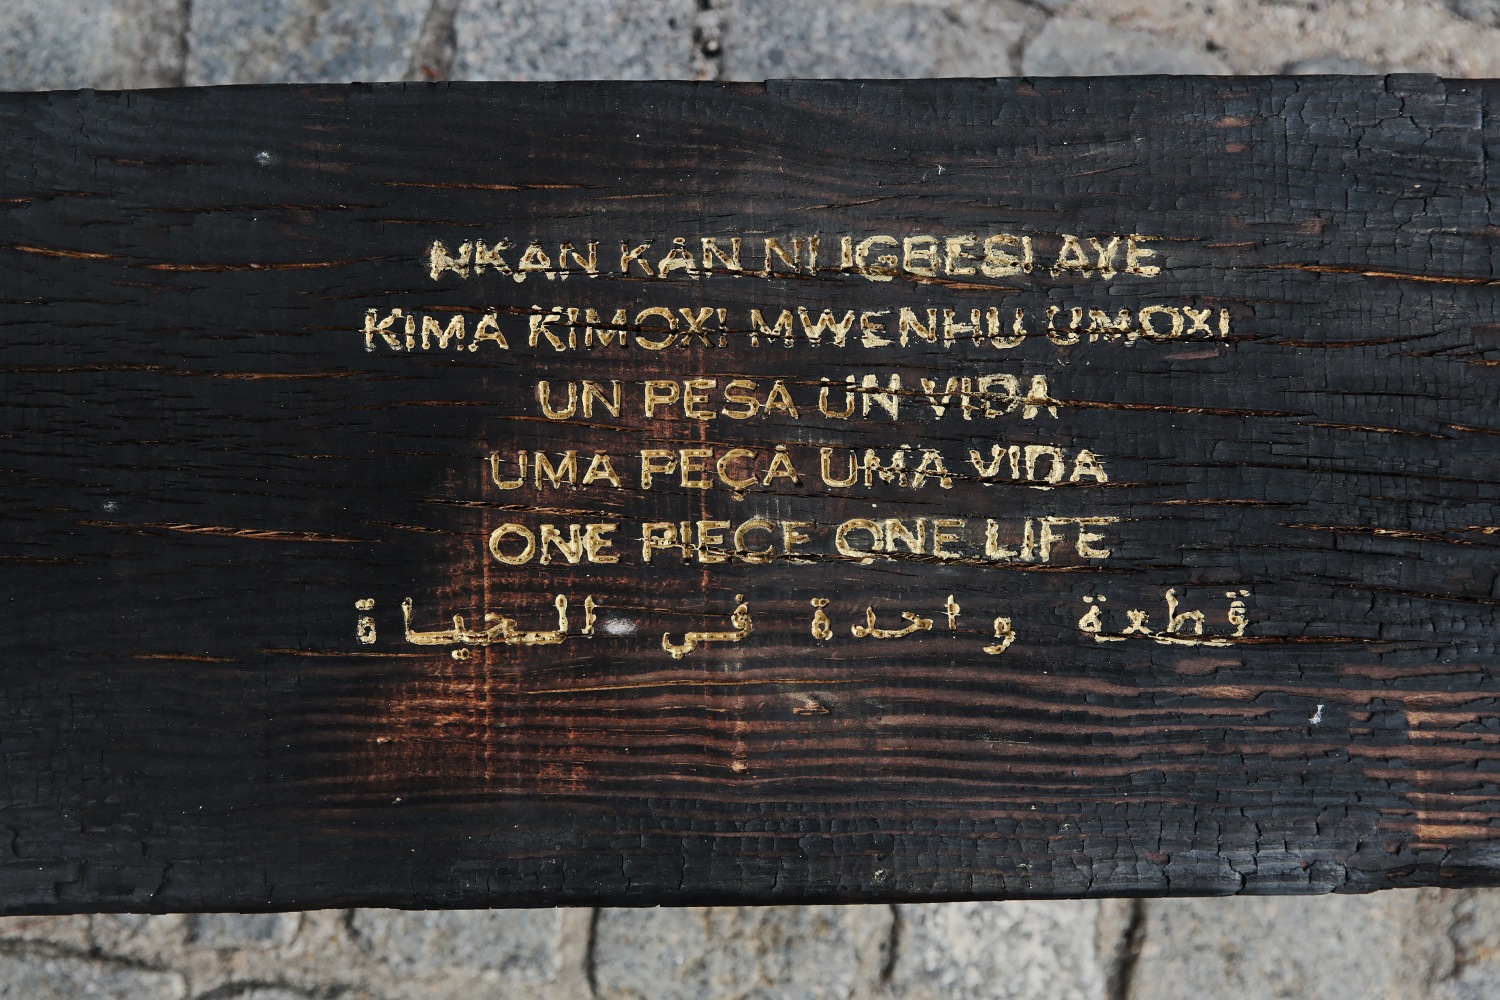 NKAN KÀN NI IGBESI AYE
KIMA KIMOXI MWENHU UMOXI
UN PESA UN VIDA
UMA PEÇA UMA VIDA
ONE PIECE ONE LIFE
قطعة واحدة في الحياة